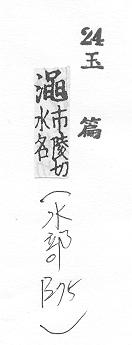 24
玉篇
澠市陵切
水名
(水部B75)